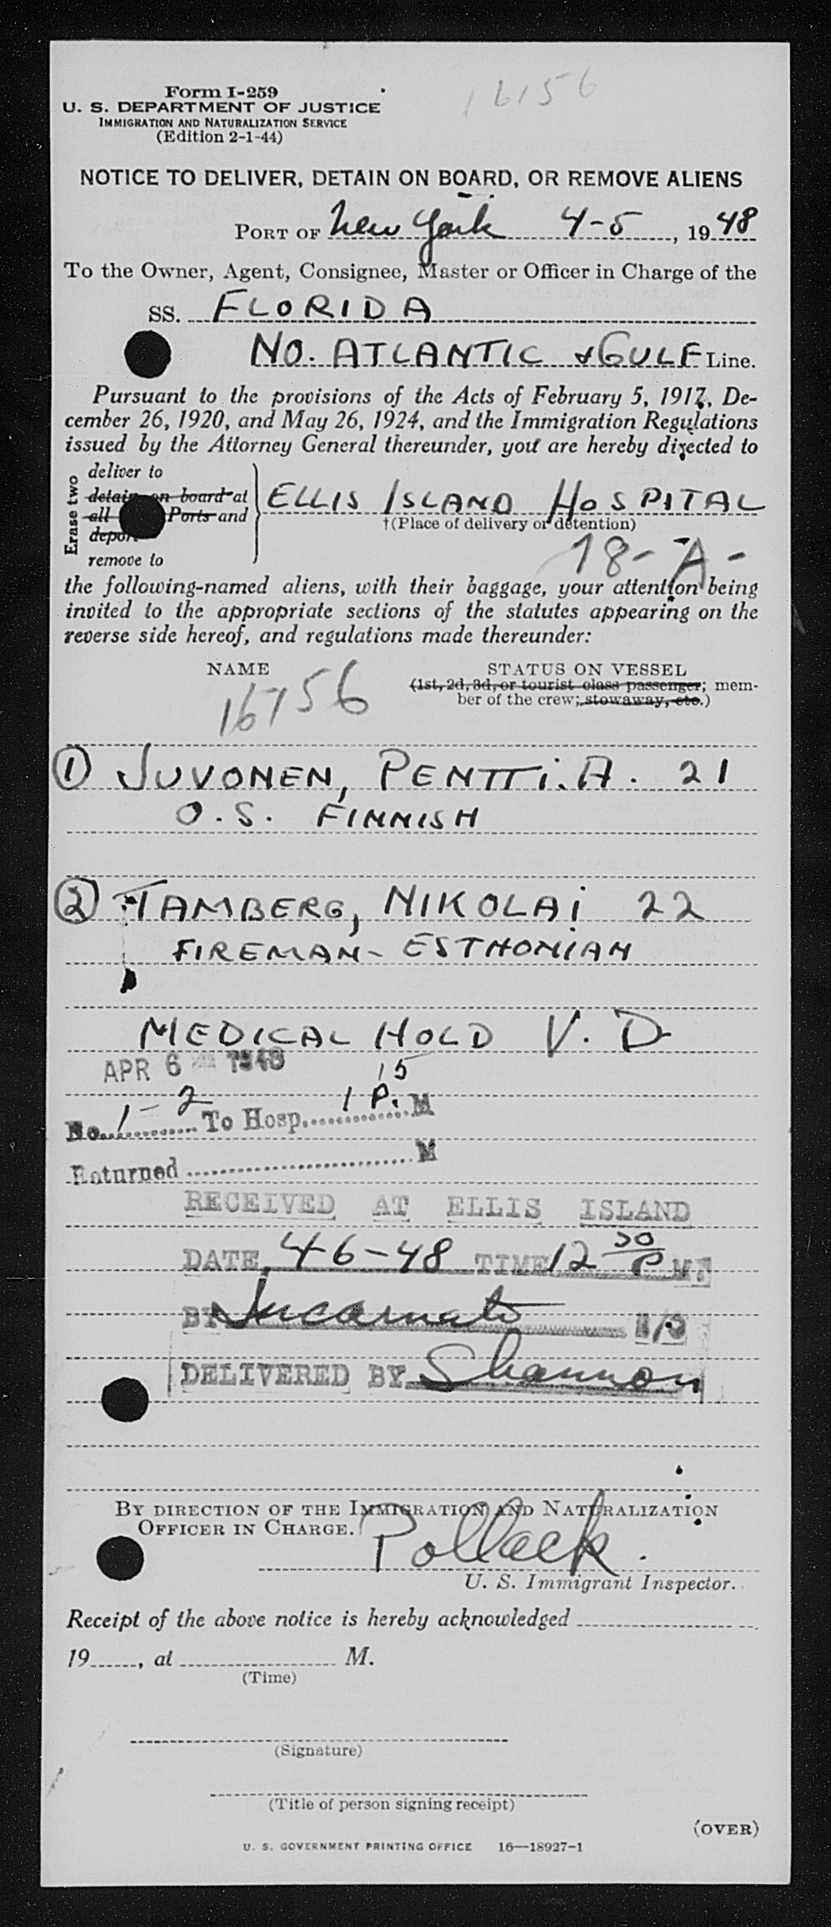 Form I-259
U. S. DEPARTMENT OF JUSTICE
IMMIGRATION AND NATURALIZATION SERVICE
(Edition 2-1-44)
16156
NOTICE TO DELIVER, DETAIN ON BOARD, OR REMOVE ALIENS
PORT OF New York 4-5, 1948
To the Owner, Agent, Consignee, Master or Officer in Charge of the
SS. FLORIDA
NO. ATLANTIC & GULF Line.
Pursuant to the provisions of the Acts of February 5, 1917, De-
cember 26, 1920, and May 26, 1924, and the Immigration Regulations
issued by the Attorney General thereunder, you are hereby directed to
Erase two
deliver to
detain on board at
all Ports and
deport
remove to
ELLIS ISLAND HOSPITAL
†(Place of delivery or detention)
18-A-
the following-named aliens, with their baggage, your attention being
invited to the appropriate sections of the statutes appearing on the
reverse side hereof, and regulations made thereunder:
NAME
STATUS ON VESSEL
(1st, 2d, 3d, or tourist class passenger; mem-
ber of the crew; stowaway, etc.)
16756
① JUVONEN, PENTTI. A. 21
O.S. FINNISH
② TAMBERG, NIKOLAI 22
FIREMAN- ESTHONIAN
MEDICAL HOLD V. D
APR 6 1948
No. 1-2 To Hosp. 1 15 P. M
Returned M
RECEIVED AT ELLIS ISLAND
DATE 4-6-48 TIME 12 30 P M.
BY Incarnato
DELIVERED BY Shannon
BY DIRECTION OF THE IMMIGRATION AND NATURALIZATION
OFFICER IN CHARGE.
Pollack.
U. S. Immigrant Inspector.
Receipt of the above notice is hereby acknowledged
19, at M.
(Time)
(Signature)
(Title of person signing receipt)
(OVER)
U. S. GOVERNMENT PRINTING OFFICE 16—18927-1